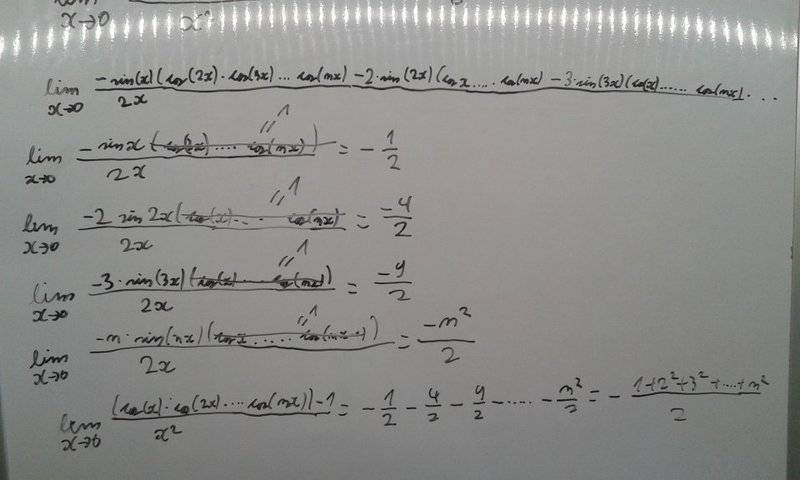 lim x→0 x²
lim x→0 (-sin(x)(cos(2x)·cos(3x)...cos(nx) -2·sin(2x)(cosx.....cos(nx) -3·sin(3x)(cos(x)......cos(nx)...)/2x
lim x→0 (-sinx(cos(2x)....cos(nx)))/2x = -1/2 "1
lim x→0 (-2 sin2x(cos(x)...cos(nx)))/2x = -4/2 "1
lim x→0 (-3·sin(3x)(cos(x)...cos(nx)))/2x = -9/2 "1
lim x→0 (-n·sin(nx)(cosx.....cos(nx-x)))/2x = -n²/2 "1
lim x→0 ((cos(x)·cos(2x)...cos(nx))-1)/x² = -1/2 -4/2 -9/2 -..... -n²/2 = -(1+2²+3²+....+n²)/2